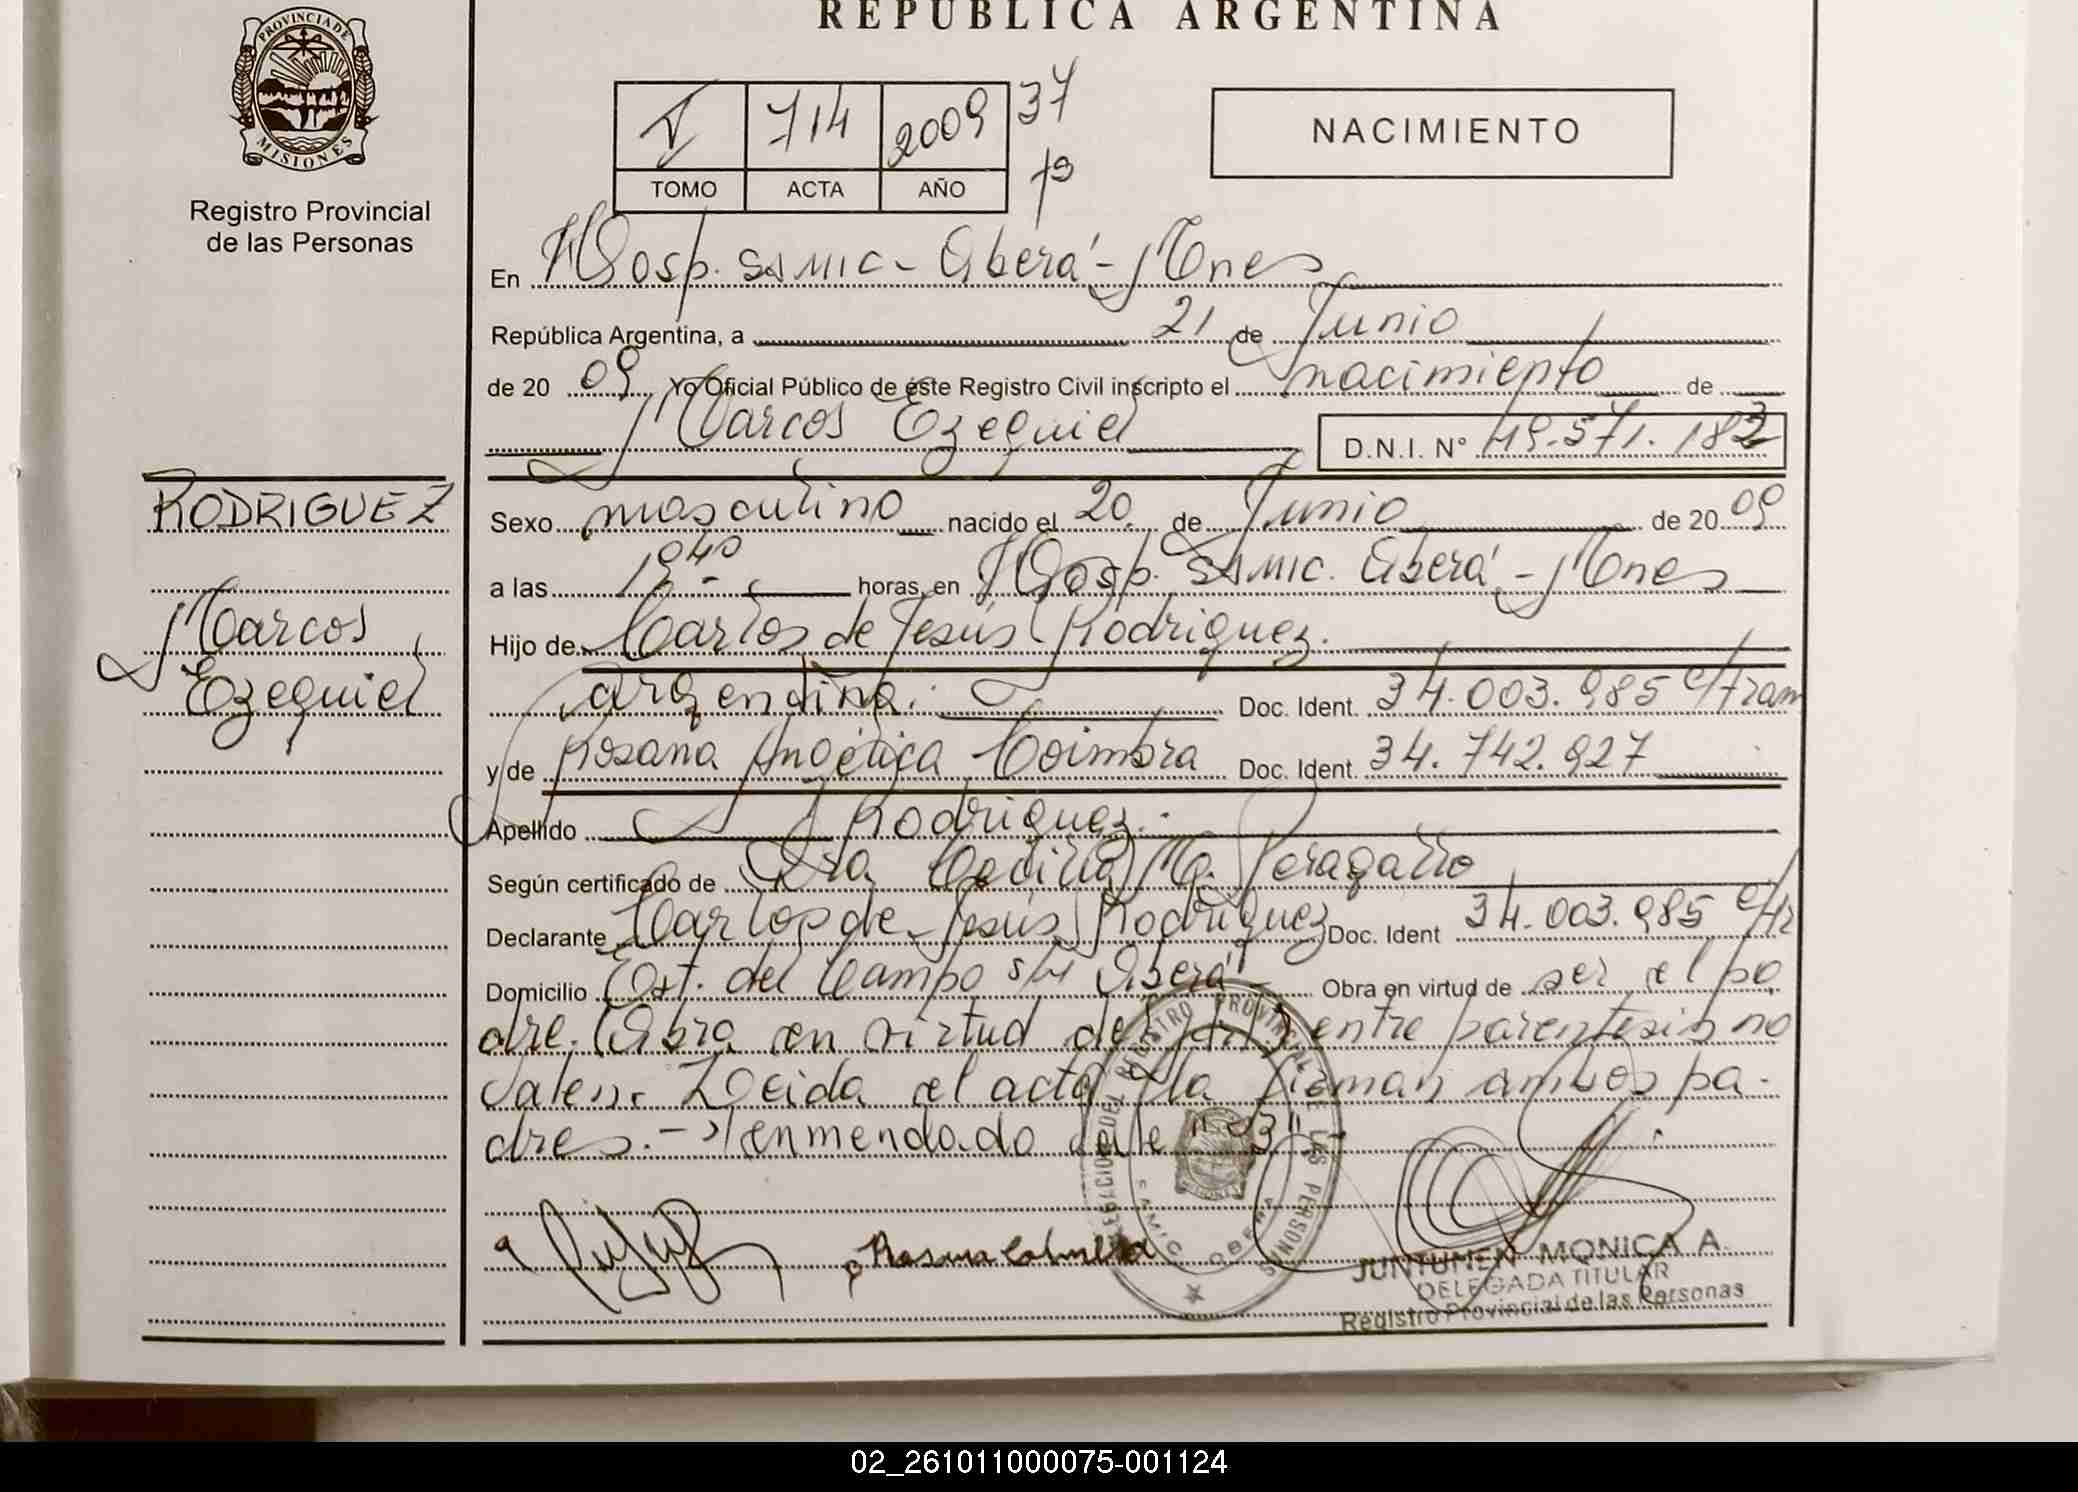 REPUBLICA ARGENTINA
PROVINCIA DE
MISIONES
Registro Provincial
de las Personas
I 714 2009 37
TOMO ACTA AÑO
NACIMIENTO
En Hosp. SAMIC - Oberá - Mnes
República Argentina, a 21 de Junio
de 20 09 Yo Oficial Público de éste Registro Civil inscripto el nacimiento de
Marcos Ezequiel D.N.I. N° 49.571.183
RODRIGUEZ
Marcos
Ezequiel
Sexo masculino nacido el 20 de Junio de 20 09
a las 19 40 horas, en Hosp. SAMIC. Oberá - Mnes
Hijo de Carlos de Jesús Rodriguez.
argentina. Doc. Ident. 34.003.985 c/tram
y de Rosana Angélica Coimbra Doc. Ident. 34.742.927
Apellido Rodriguez.-
Según certificado de Dra M. Peragallo
Declarante Carlos de Jesús Rodriguez Doc. Ident 34.003.985 c/tr
Domicilio Ext. del Campo s/n Oberá Obra en virtud de ser el pa
dre. (Obra en virtud de) entre parentesis no
valen. Leida el acta la firman ambos pa-
dres.- enmendado vale "3"
REGISTRO PROVINCIAL DE LAS PERSONAS
SAMIC OBERA
JUNTUNEN MONICA A.
DELEGADA TITULAR
Registro Provincial de las Personas
02_261011000075-001124